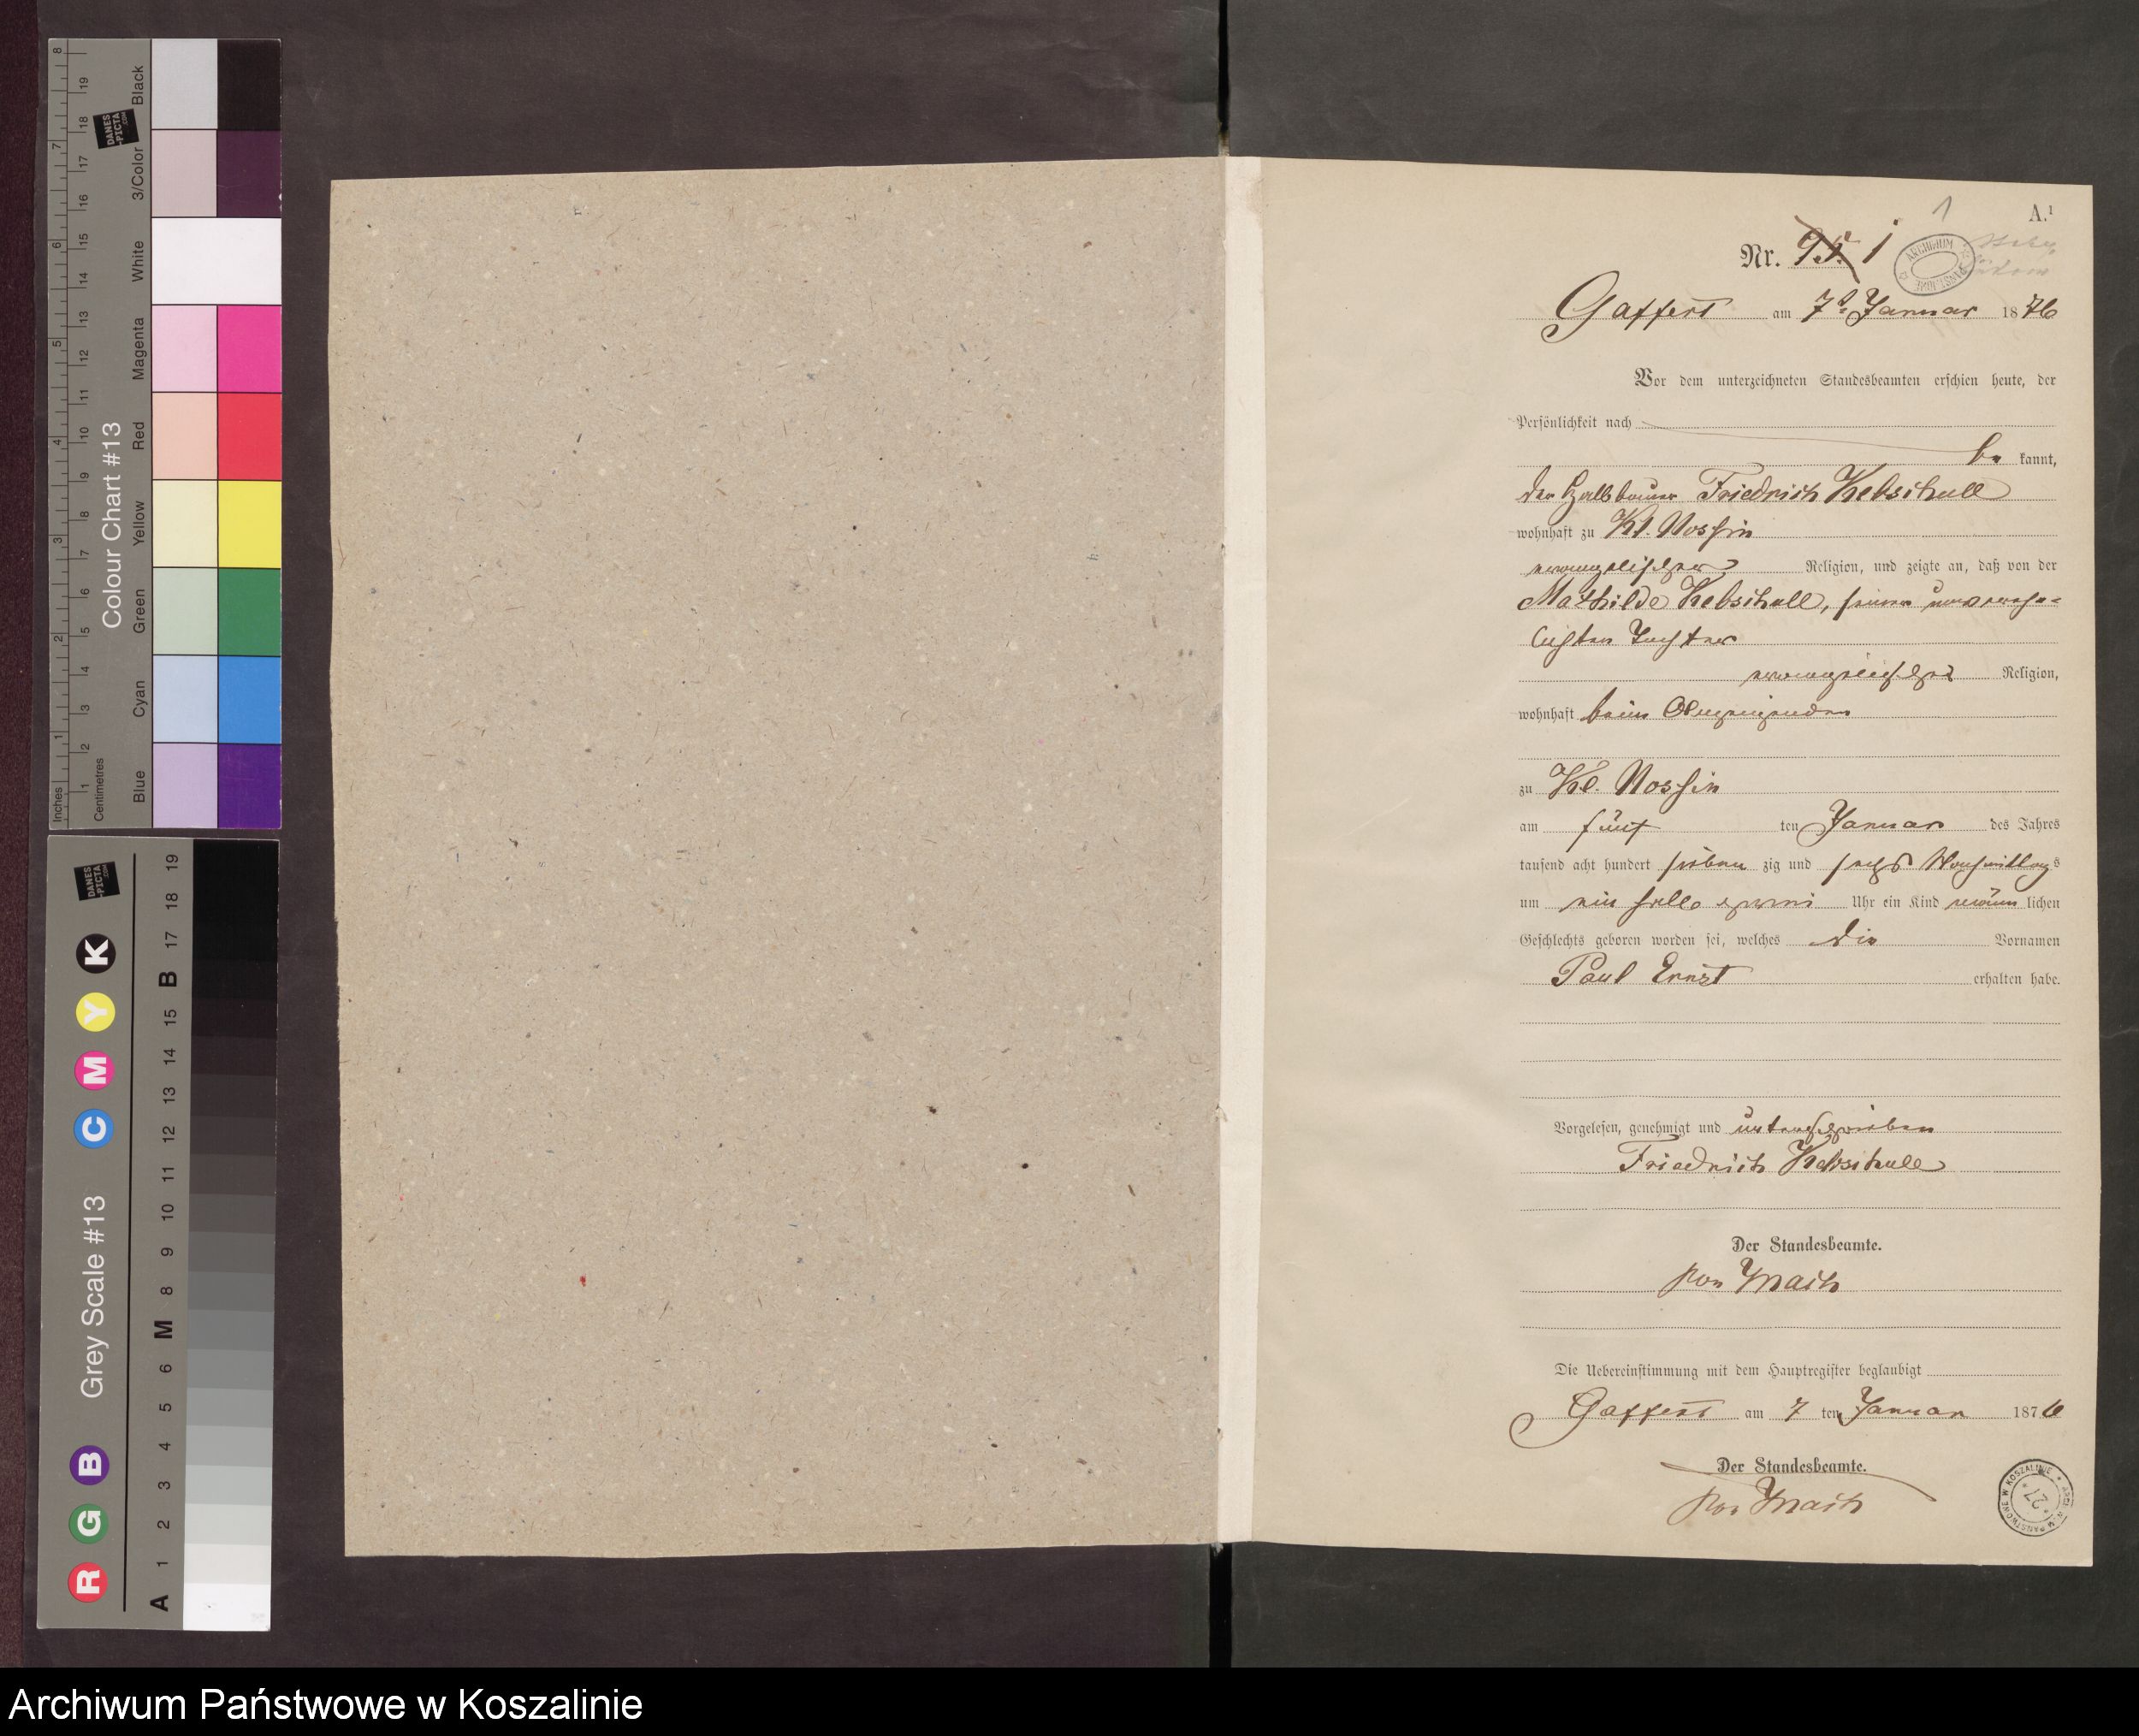 Inches
Centimetres
1 2 3 4 5 6 7 8
1 2 3 4 5 6 7 8 9 10 11 12 13 14 15 16 17 18 19
Colour Chart #13
DANES
-PICTA
.COM
Blue Cyan Green Yellow Red Magenta White 3/Color Black
Grey Scale #13
DANES
-PICTA
.COM
R G B C M Y K
A 1 2 3 4 5 6 M 8 9 10 11 12 13 14 15 B 17 18 19
1
A.¹
Nr. 95. 1
ARCHIWUM
Gaffert am 7t. Januar 1876
Vor dem unterzeichneten Standesbeamten erschien heute, der
Persönlichkeit nach
be kannt,
der Halbbauer Friedrich Kebschull
wohnhaft zu Kl. Nossin
evangelischer Religion, und zeigte an, daß von der
Mathilde Kebschull, seiner unverehe-
lichten Tochter
evangelischer Religion,
wohnhaft beim Anzeigenden
zu Kl. Nossin
am fünf ten Januar des Jahres
tausend acht hundert sieben zig und sechs Nachmittags
um ein halb zwei Uhr ein Kind männ lichen
Geschlechts geboren worden sei, welches die Vornamen
Paul Ernst erhalten habe.
Vorgelesen, genehmigt und unterschrieben
Friedrich Kebschull
Der Standesbeamte.
von Mach
Die Uebereinstimmung mit dem Hauptregister beglaubigt
Gaffert am 7 ten Januar 1876
Der Standesbeamte.
von Mach
PAŃSTWOWE W KOSZALINIE
27
Archiwum Państwowe w Koszalinie